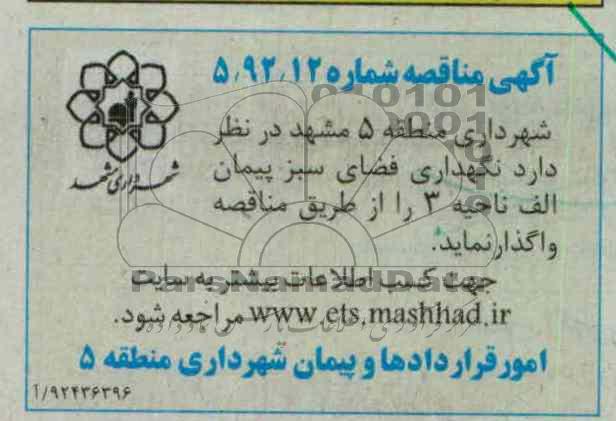 آگهی مناقصه شماره ۵٫۹۲٫۱۲
شهرداری منطقه ۵ مشهد در نظر
دارد نگهداری فضای سبز پیمان
الف ناحیه ۳ را از طریق مناقصه
واگذارنماید.
جهت کسب اطلاعات بیشتر به سایت
www.ets.mashhad.ir مراجعه شود.
امور قراردادها و پیمان شهرداری منطقه ۵
۹۲۴۳۶۳۹۶/آ
شهرداری مشهد
ParsNamadData